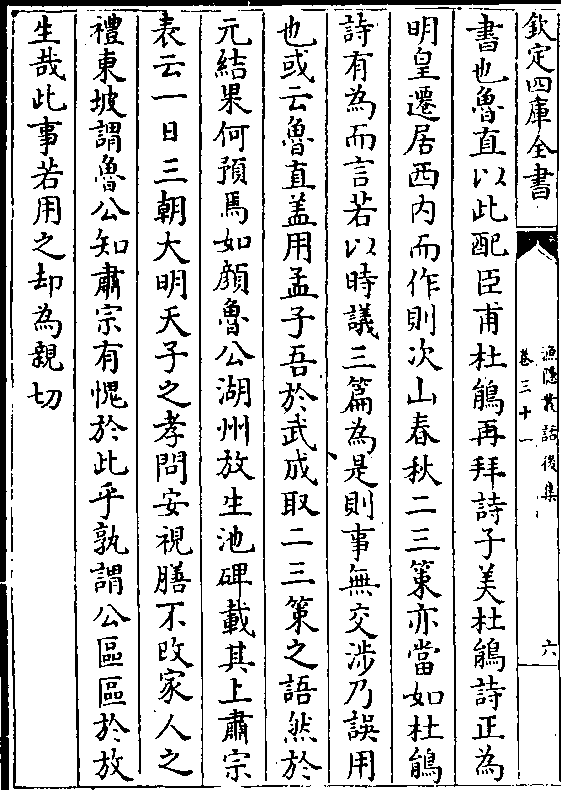 欽定四庫全書
漁隱叢話後集
卷三十一
六
書也魯直以此配臣甫杜鵑再拜詩子美杜鵑詩正為
明皇遷居西内而作則次山春秋二三策亦當如杜鵑
詩有為而言若以時議三篇為是則事無交涉乃誤用
也或云魯直盖用孟子吾於武成取二三策之語然於
元結果何預焉如顔魯公湖州放生池碑載其上肅宗
表云一日三朝大明天子之孝問安視膳不改家人之
禮東坡謂魯公知肅宗有愧於此乎孰謂公區區於放
生哉此事若用之却為親切